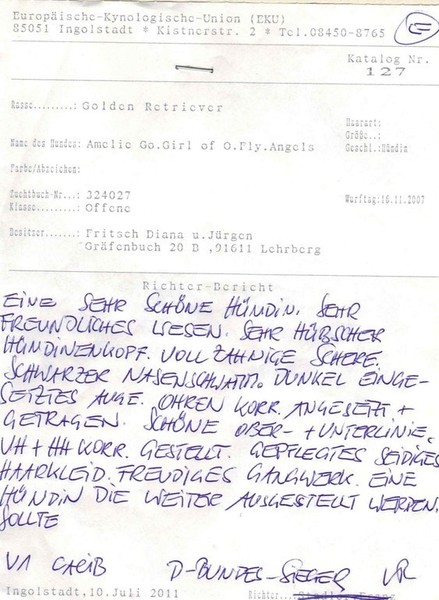 Europäische-Kynologische-Union (EKU)
85051 Ingolstadt * Kistnerstr. 2 * Tel.08450-8765
Katalog Nr.
127
Rasse.........: Golden Retriever
Haarart:
Größe..:
Name des Hundes: Amelie Go.Girl of O.Fly.Angels
Geschl.:Hündin
Farbe/Abzeichen:
Zuchtbuch-Nr...: 324027
Wurftag:16.11.2007
Klasse.........: Offene
Besitzer.......: Fritsch Diana u.Jürgen
Gräfenbuch 20 B ,91611 Lehrberg
Richter-Bericht
EINE SEHR SCHÖNE HÜNDIN. SEHR
FREUNDLICHES WESEN. SEHR HÜBSCHER
HÜNDINENKOPF. VOLLZAHNIGE SCHERE.
SCHWARZER NASENSCHWAMM. DUNKEL EINGE-
SETZTES AUGE. OHREN KORR. ANGESETZT +
GETRAGEN. SCHÖNE OBER- + UNTERLINIE.
VH + HH KORR. GESTELLT. GEPFLEGTES SEIDIGES
HAARKLEID. FREUDIGES GANGWERK. EINE
HÜNDIN DIE WEITER AUSGESTELLT WERDEN
SOLLTE
V1 CACIB D-BUNDES-SIEGER
Ingolstadt,10.Juli 2011
Richter...: